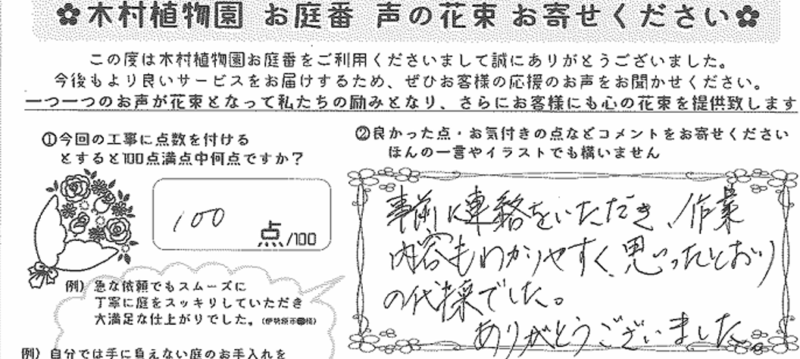 ✿木村植物園 お庭番 声の花束 お寄せください✿
この度は木村植物園お庭番をご利用くださいまして誠にありがとうございました。
今後もより良いサービスをお届けするため、ぜひお客様の応援のお声をお聞かせください。
一つ一つのお声が花束となって私たちの励みとなり、さらにお客様にも心の花束を提供致します
①今回の工事に点数を付ける
とすると100点満点中何点ですか?
100 点/100
②良かった点・お気付きの点などコメントをお寄せください
ほんの一言やイラストでも構いません
事前に連絡をいただき、作業
内容もわかりやすく、思ったとおり
の伐採でした。
ありがとうございました。
例) 急な依頼でもスムーズに
丁寧に庭をスッキリしていただき
大満足な仕上がりでした。(伊勢原市 様)
例) 自分では手に負えない庭のお手入れを